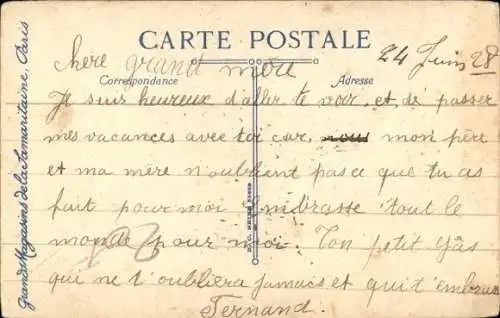 CARTE POSTALE
24 Juin 28
Chere grand mère
Correspondance
Adresse
Je suis heureux d'aller te voir et de passer
mes vacances avec toi car nous mon père
et ma mère n'oublient pas ce que tu as
fait pour moi Embrasse tout le
monde pour moi. Ton petit gâs
qui ne t'oubliera jamais et qui t'embrasse
Fernand.
Grands Magasins de la Samaritaine, Paris